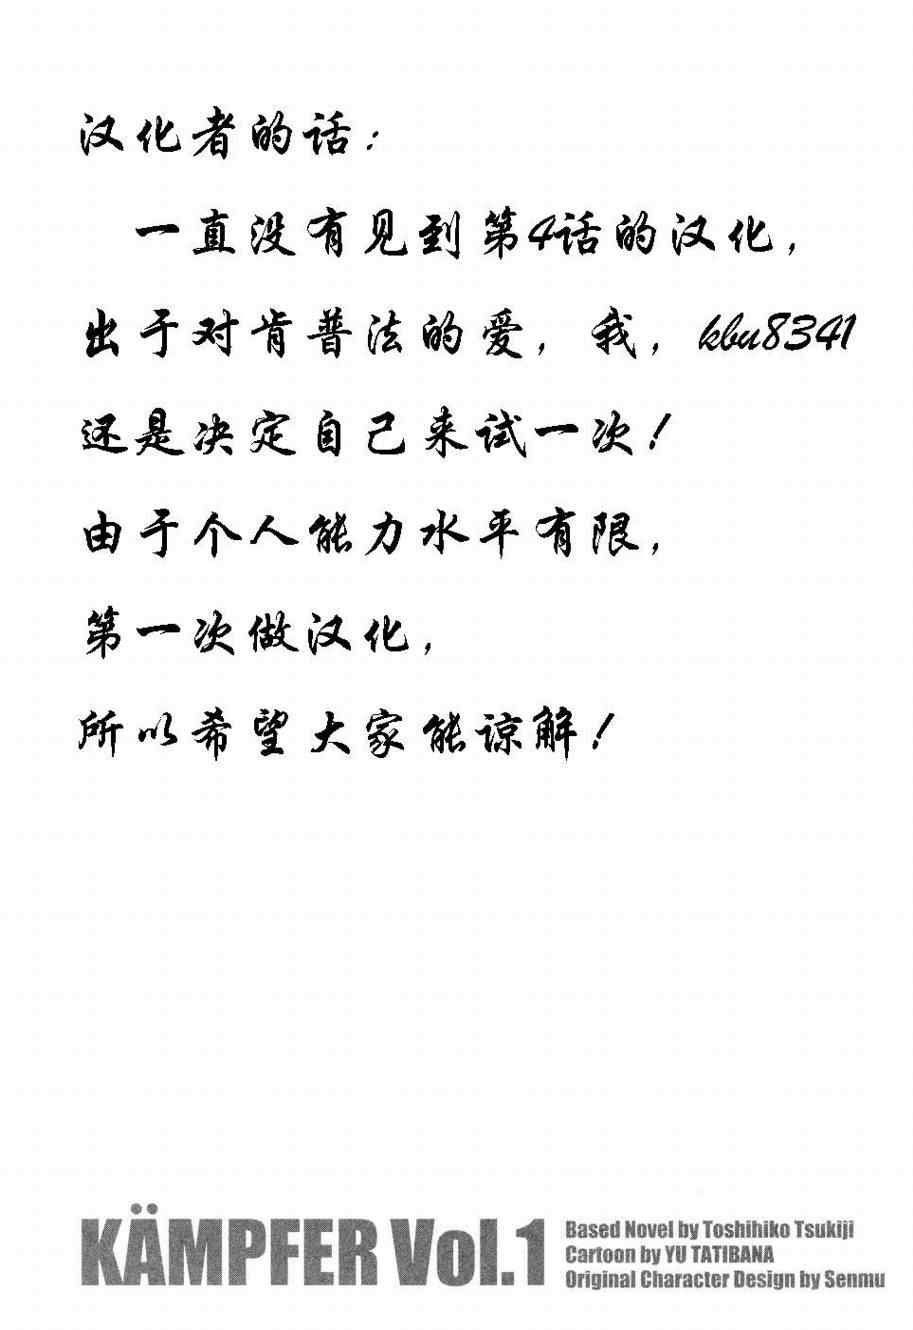 汉化者的话：
一直没有见到第4话的汉化，
出于对肯普法的爱，我，kbu8341
还是决定自己来试一次！
由于个人能力水平有限，
第一次做汉化，
所以希望大家能谅解！
KÄMPFER Vol.1
Based Novel by Toshihiko Tsukiji
Cartoon by YU TATIBANA
Original Character Design by Senmu